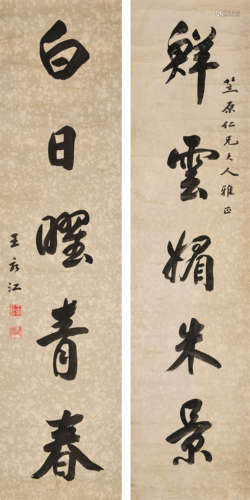 鮮雲媚朱景
原仁兄大人雅正
白日曜青春
王
江